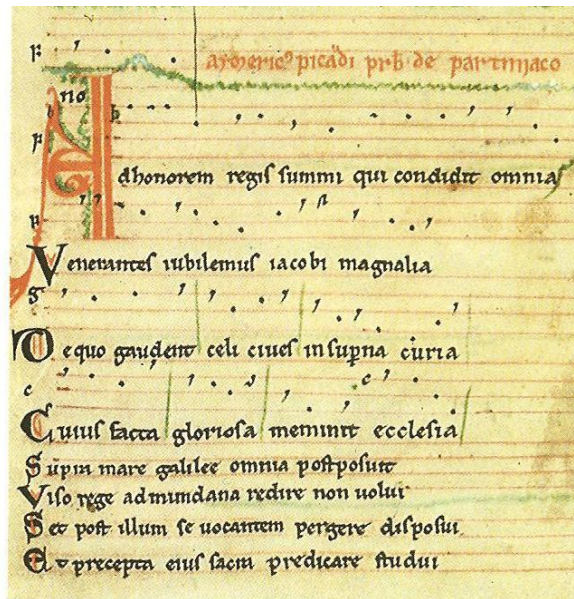 aẏmeric᾽ picadi prb̄ de partiniaco
no
Adhonorem regis summi qui condidit omnia
Venerantes iubilemus iacobi magnalia
De quo gaudent celi ciues in sup̱na curia
Cuius facta gloriosa meminit ecclesia
Sup̱ia mare galilee omnia postposuit
Viso rege ad mundana redire non uolui
Set post illum se uocantem pergere disposui
Et precepta eius sacra predicare studui